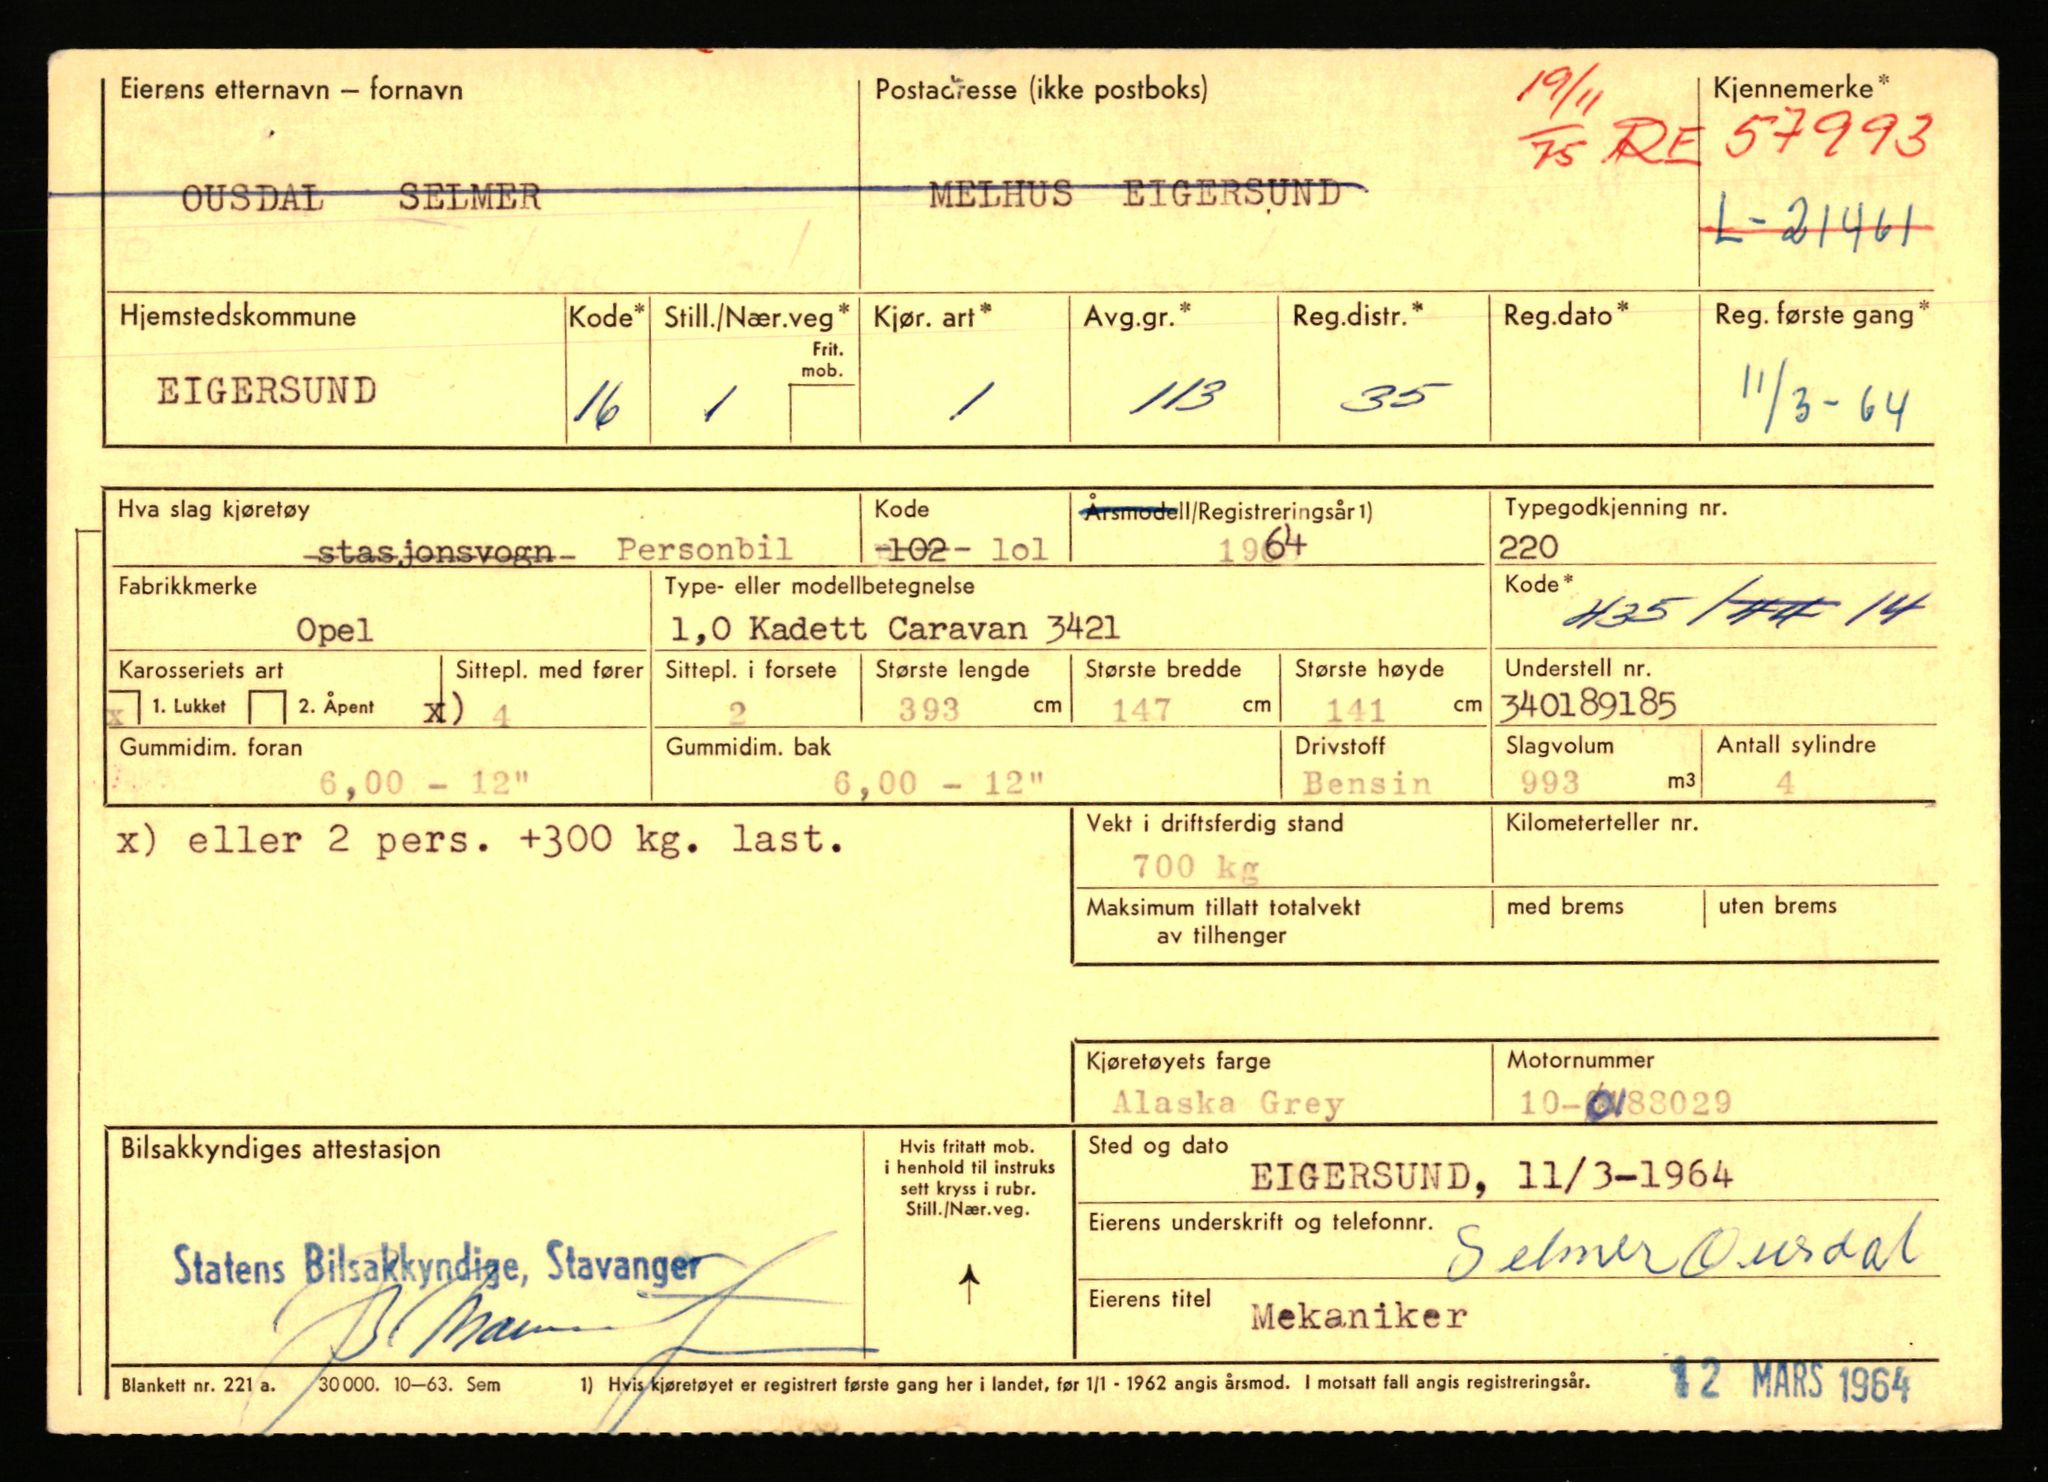 Eierens etternavn – fornavn
Postadresse (ikke postboks)
19/11
75 RE 57993
Kjennemerke*
OUSDAL SELMER
MELHUS EIGERSUND
L-21461
Hjemstedskommune
Kode*
Still./Nær.veg*
Frit.
mob.
Kjør. art*
Avg.gr.*
Reg.distr.*
Reg.dato*
Reg. første gang*
EIGERSUND
16
1
1
113
35
11/3-64
Hva slag kjøretøy
Kode
Årsmodell/Registreringsår1)
Typegodkjenning nr.
stasjonsvogn Personbil
-102- lol
1964
220
Fabrikkmerke
Type- eller modellbetegnelse
Kode*
Opel
1,0 Kadett Caravan 3421
435 / 14
Karosseriets art
Sittepl. med fører
Sittepl. i forsete
Største lengde
Største bredde
Største høyde
Understell nr.
x 1. Lukket
2. Åpent
x) 4
2
393 cm
147 cm
141 cm
340189185
Gummidim. foran
Gummidim. bak
Drivstoff
Slagvolum
Antall sylindre
6,00 - 12"
6,00 - 12"
Bensin
993 m3
4
x) eller 2 pers. +300 kg. last.
Vekt i driftsferdig stand
Kilometerteller nr.
700 kg
Maksimum tillatt totalvekt
av tilhenger
med brems
uten brems
Kjøretøyets farge
Motornummer
Alaska Grey
10-0188029
Bilsakkyndiges attestasjon
Hvis fritatt mob.
i henhold til instruks
sett kryss i rubr.
Still./Nær.veg.
Sted og dato
EIGERSUND, 11/3-1964
Eierens underskrift og telefonnr.
Selmer Ousdal
Statens Bilsakkyndige, Stavanger
Eierens titel
Mekaniker
Blankett nr. 221 a. 30 000. 10–63. Sem
1) Hvis kjøretøyet er registrert første gang her i landet, før 1/1 - 1962 angis årsmod. I motsatt fall angis registreringsår.
12 MARS 1964